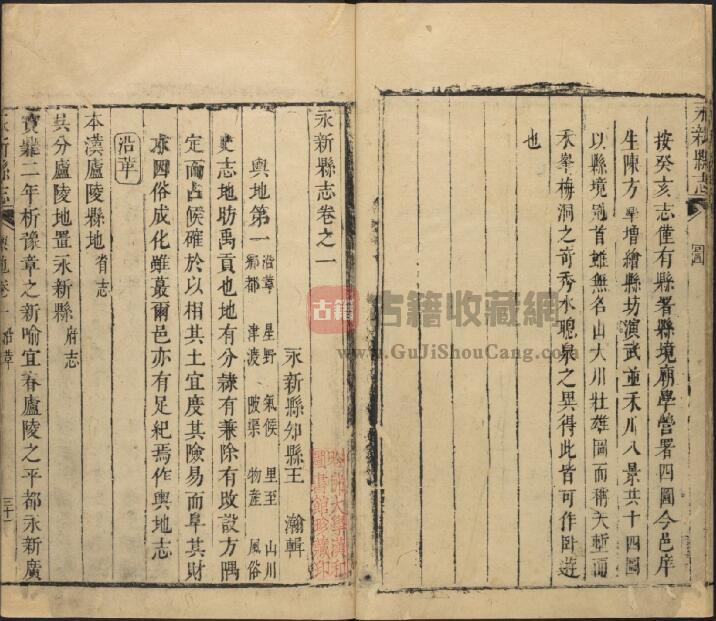 永新縣志
圖
按癸亥志僅有縣署縣境廟學營署四圖今邑庠
生陳方平增繪縣坊演武並禾川八景共十四圖
以縣境冠首雖無名山大川壯雄圖而稱天塹而
禾峯梅洞之奇秀水聰泉之異得此皆可作臥遊
也
永新縣志卷之一
永新縣知縣王 瀚輯
輿地第一 沿革 星野 氣候 里至 山川
鄉都 津渡 陂渠 物產 風俗
史志地昉禹貢也地有分隸有兼除有攺設方隅
定而占候確於以相其土宜度其險易而阜其財
求因俗成化雖蕞爾邑亦有足紀焉作輿地志
沿革
本漢廬陵縣地 省志
吳分廬陵地置永新縣 府志
寶鼎二年析豫章之新喻宜春廬陵之平都永新廣
永新縣志
輿地卷一 沿革
三十一
哈佛大學漢和
圖書館珍藏印
古籍
古籍收藏網
www.GuJiShouCang.com